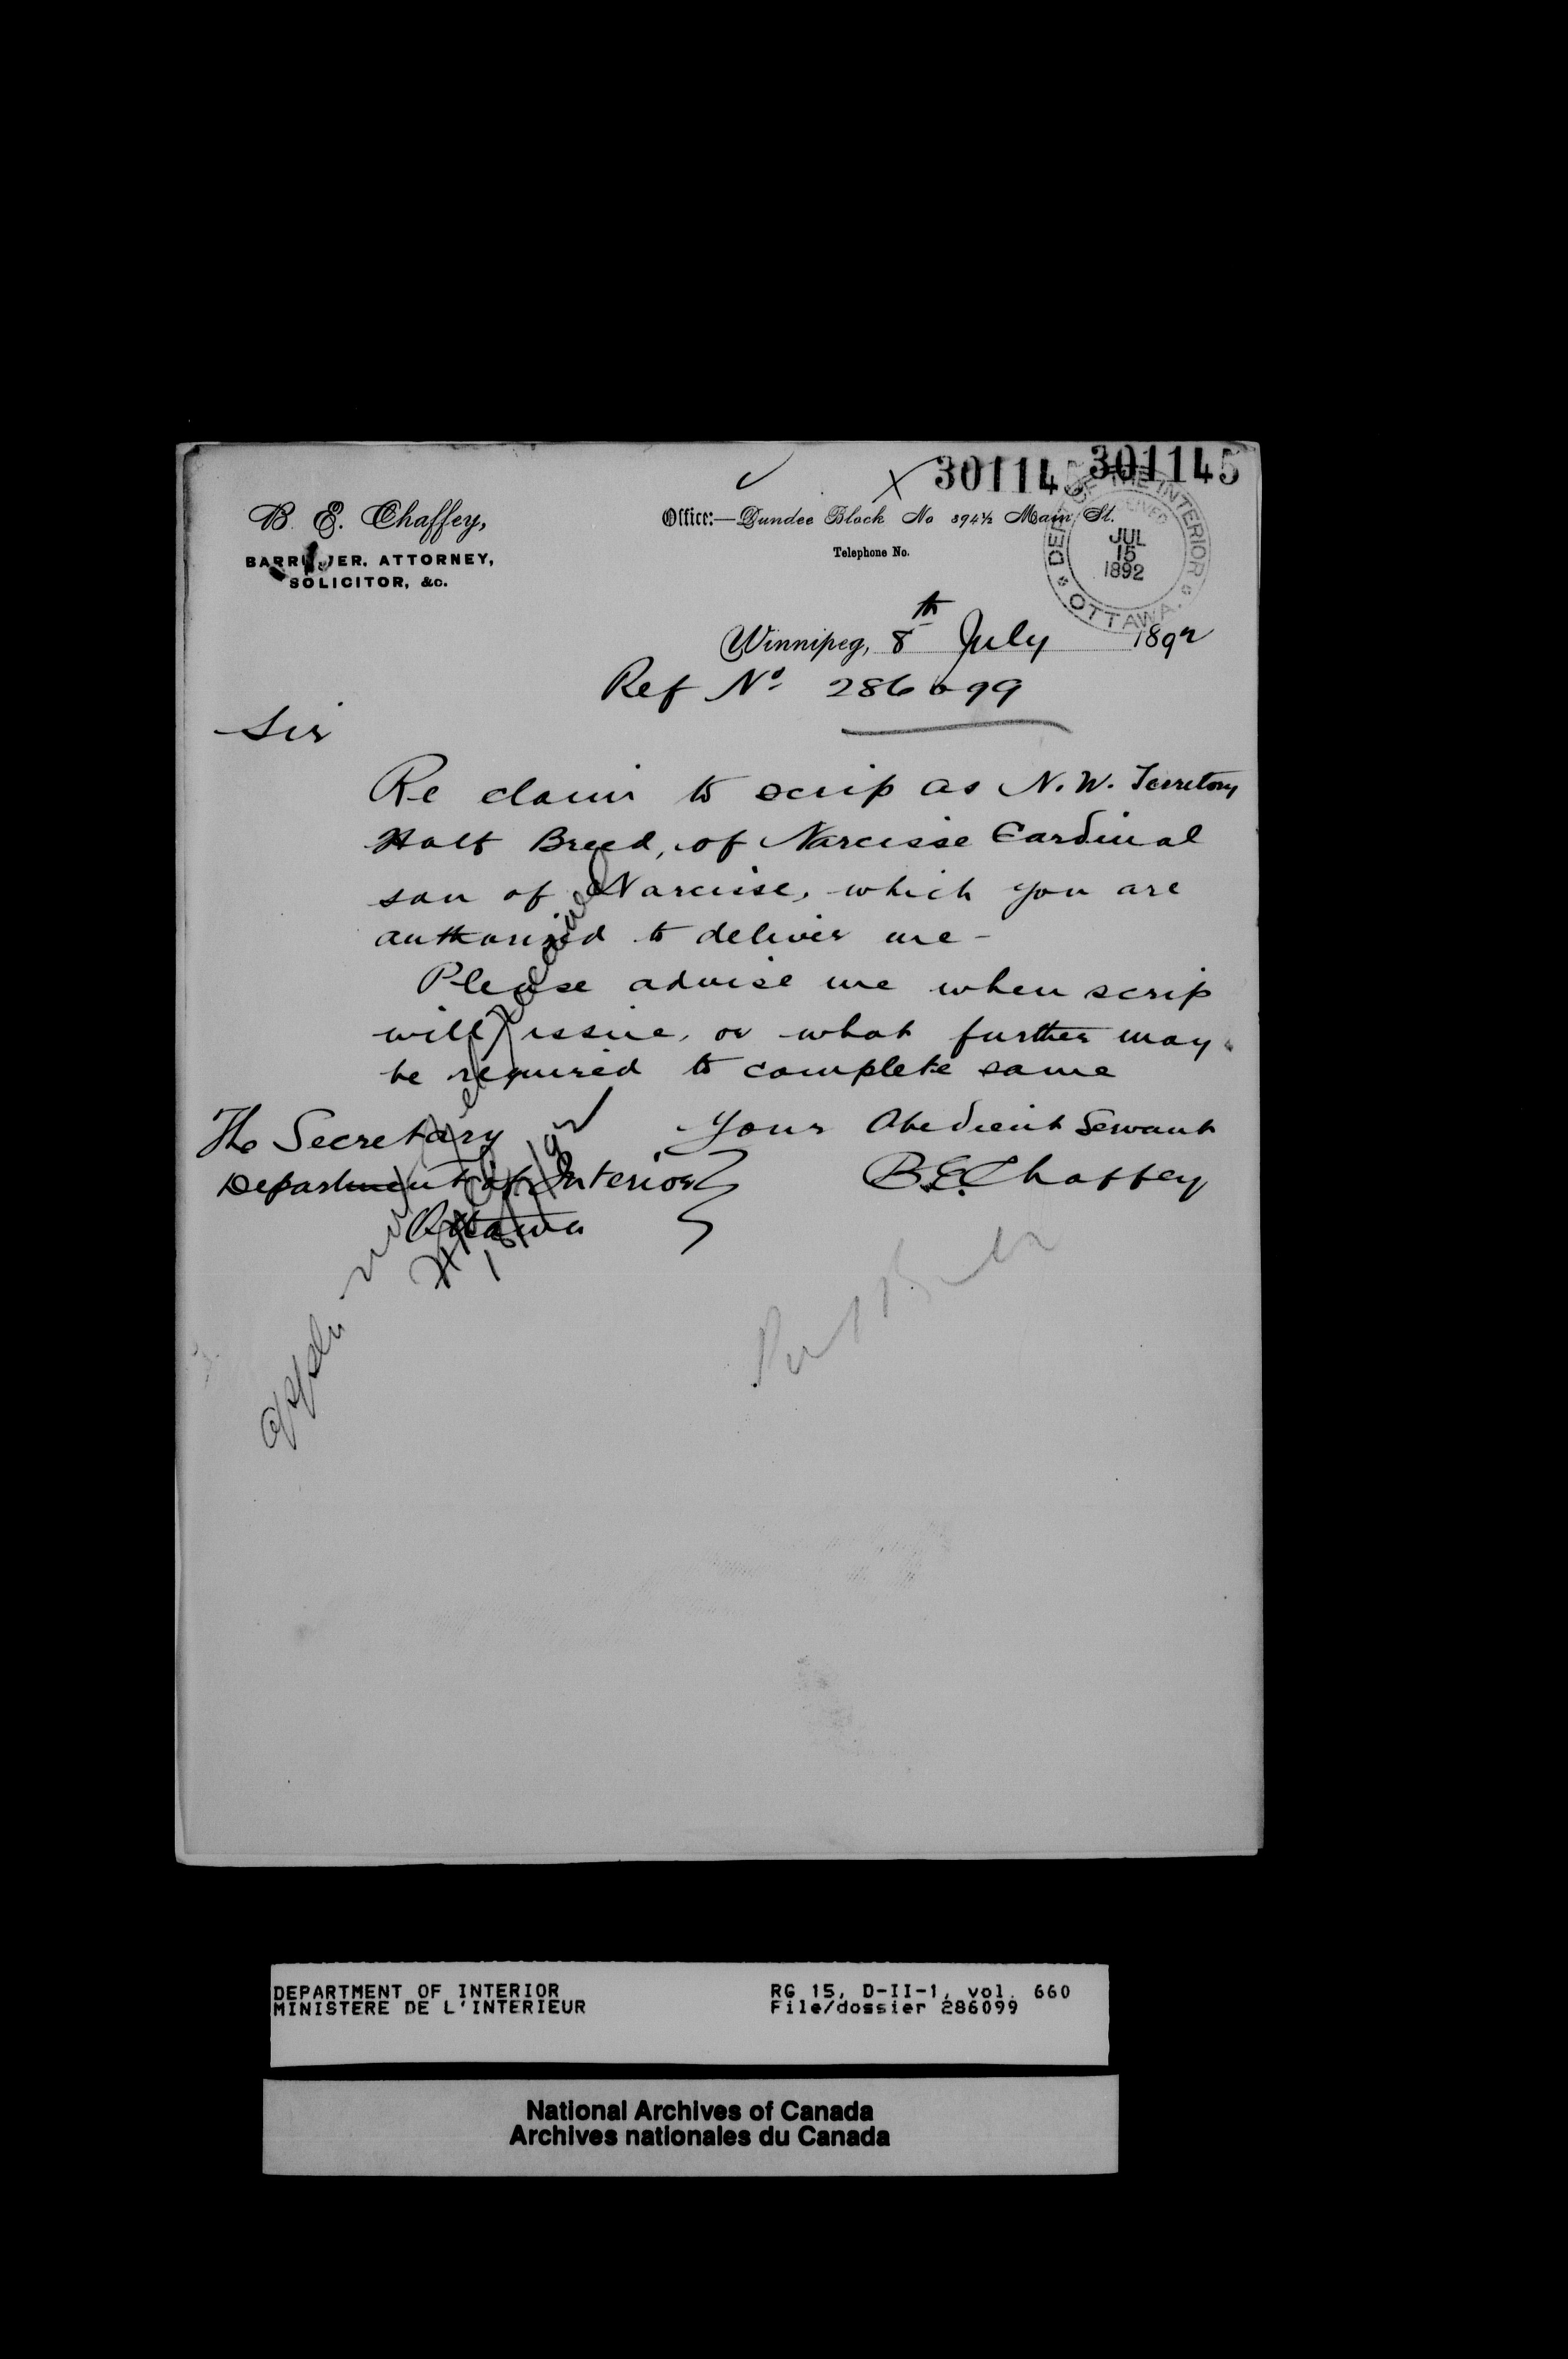 301145 301145
B. E. Chaffey,
BARRISTER, ATTORNEY,
SOLICITOR, &c.
Office:—Dundee Block No 394½ Main St.
Telephone No.
DEPT OF THE INTERIOR
RECEIVED
JUL
15
1892
OTTAWA.
Winnipeg, 8th July 1892
Ref No 286099
Sir
Re claim to scrip as N. W. Territory
Half Breed, of Narcisse Cardinal
son of Narcisse, which you are
authorized to deliver me -
Please advise me when scrip
will issue, or what further may
be required to complete same
Your Obedient Servant
B.E. Chaffey
The Secretary
Department of Interior
Ottawa
DEPARTMENT OF INTERIOR
MINISTERE DE L'INTERIEUR
RG 15, D-II-1, vol. 660
File/dossier 286099
National Archives of Canada
Archives nationales du Canada